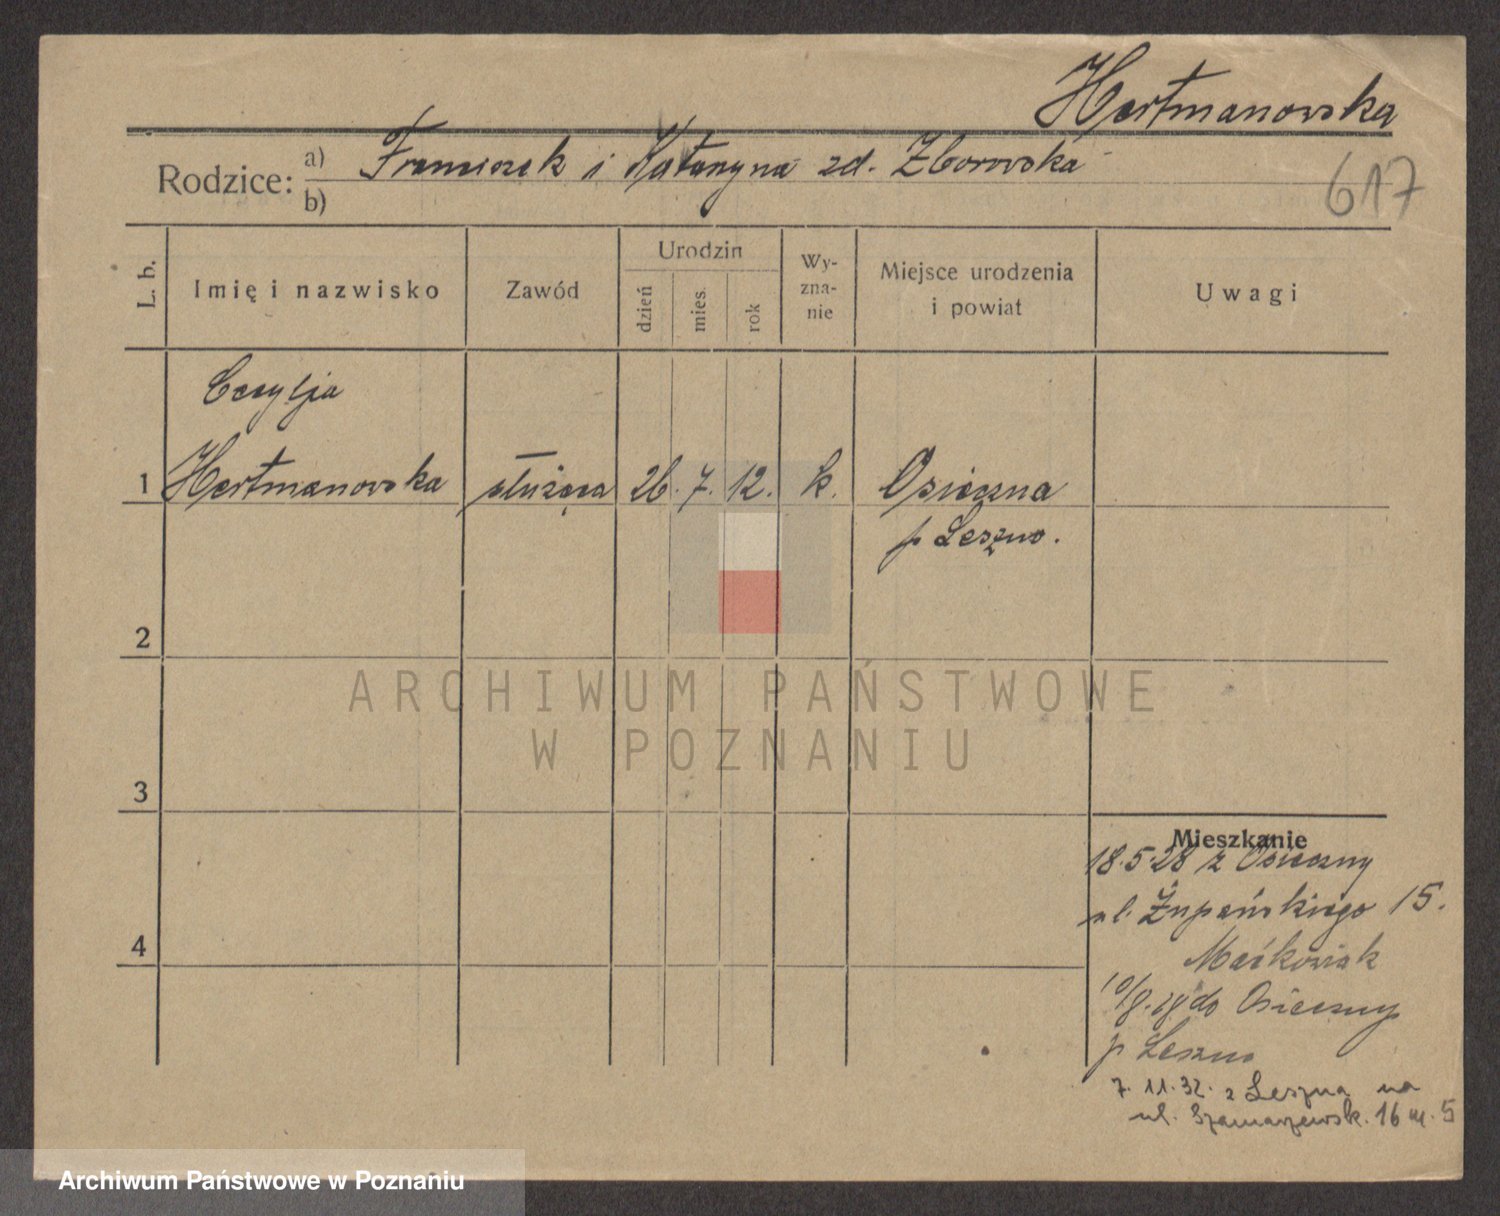 Hertmanowska
Rodzice: a) Franciszek i Katarzyna zd. Zborowska
b)
617
L. b.
Imię i nazwisko
Zawód
Urodzin
dzień
mies.
rok
Wy-
zna-
nie
Miejsce urodzenia
i powiat
Uwagi
Cecylja
1 Hertmanowska służąca 26. 7. 12. k. Osieczna
p Leszno.
2
ARCHIWUM PAŃSTWOWE
W POZNANIU
3
Mieszkanie
18.5.28 z Osieczny
ul. Żupańskiego 15.
4
Maćkowiak
10/8.28 do Osieczny
p Leszno
7. 11. 32. z Leszna na
ul. Szamarzewsk. 16 m. 5
Archiwum Państwowe w Poznaniu